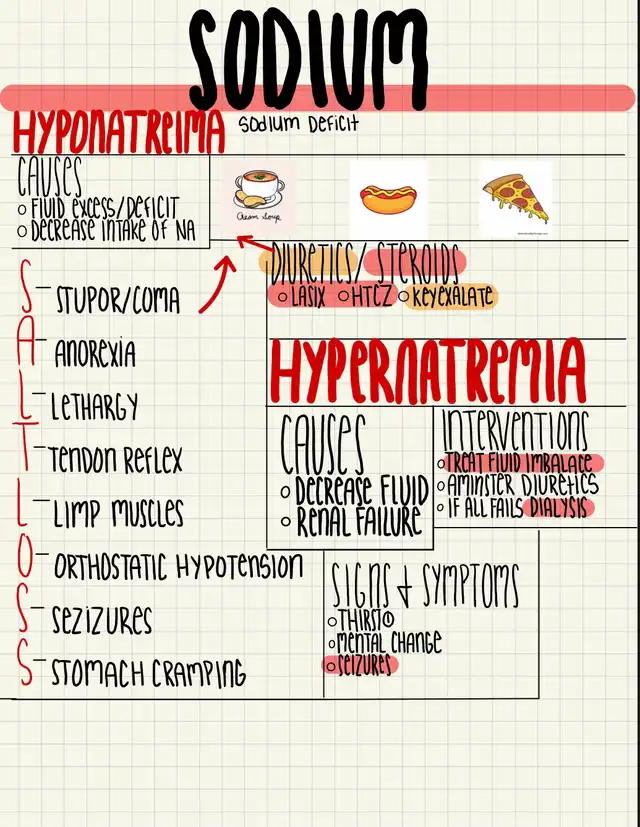 SODIUM
HYPONATREIMA
SODIUM DEFICIT
CAUSES
○ FLUID EXCESS/DEFICIT
○ DECREASE INTAKE OF NA
Cream Soup
DIURETICS/ STEROIDS
○ LASIX ○ HTCZ ○ KEYEXALATE
S - STUPOR/COMA
A - ANOREXIA
L - LETHARGY
T - TENDON REFLEX
L - LIMP MUSCLES
O - ORTHOSTATIC HYPOTENSION
S - SEZIZURES
S - STOMACH CRAMPING
HYPERNATREMIA
CAUSES
○ DECREASE FLUID
○ RENAL FAILURE
INTERVENTIONS
○ TREAT FLUID IMBALACE
○ AMINSTER DIURETICS
○ IF ALL FAILS DIALYSIS
SIGNS & SYMPTOMS
○ THIRST
○ MENTAL CHANGE
○ SEIZURES